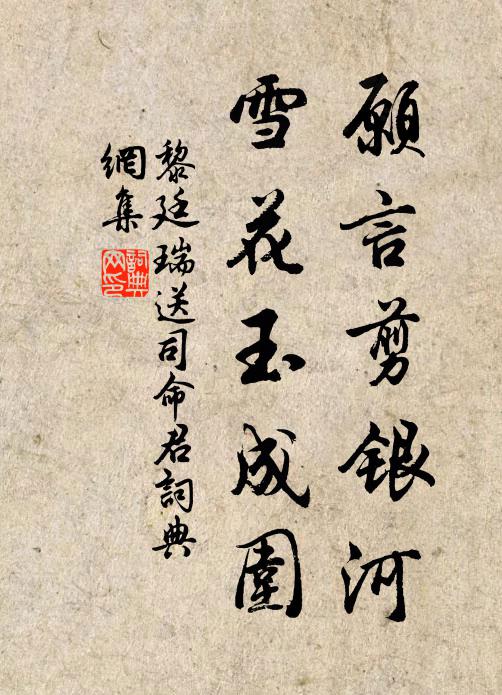 願言剪銀河
雪花玉成圍
黎廷瑞送司命君詞典
網集
詞典
网印